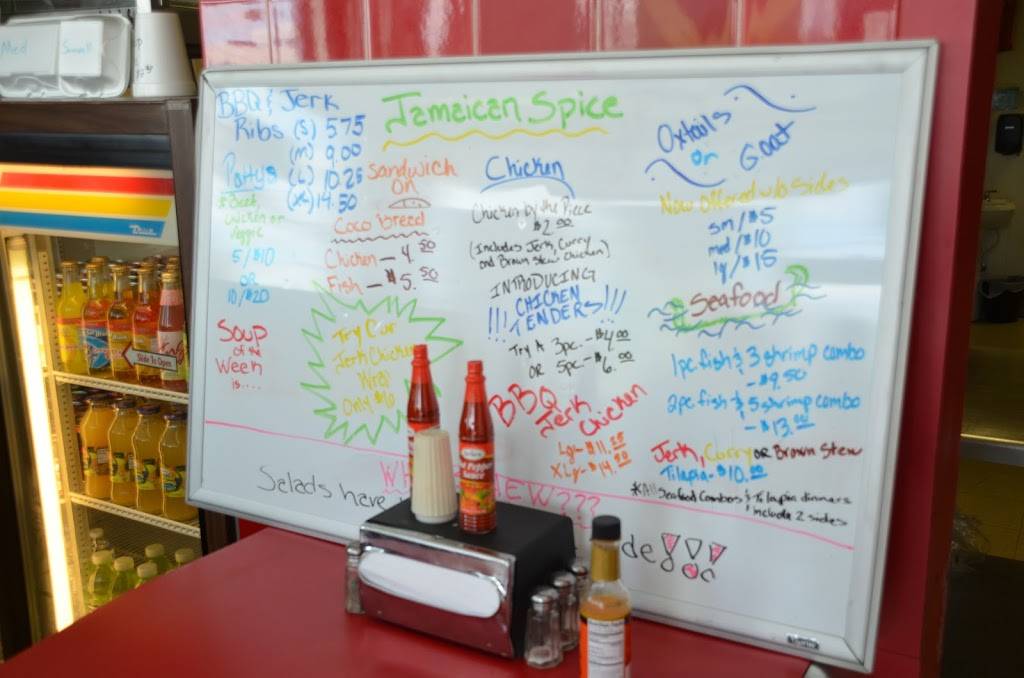 Med
Small
Jamaican Spice
BBQ & Jerk
Ribs (S) 575
(M) 9.00
(L) 10.25
(XL) 14.50
Pattys
Beef,
chicken or
Veggie
5/$10
OR
10/$20
Soup
of the
Week
is....
Sandwich
ON
Coco bread
Chicken — 4.50
Fish — $5.50
Try Our
Jerk Chicken
Wrap
Only $6
Chicken
Chicken by the Piece
$2.00
(Includes Jerk, Curry
and Brown stew Chicken)
INTRODUCING
!!! CHICKEN
TENDERS!!!
Try A 3pc. - $4.00
OR 5pc. - $6.00
BBQ
Jerk
Chicken
Lg - $11.50
XLg - $14.50
Oxtails
or
Goat
Now Offered w/o Sides
sm/$5
med/$10
lg/$15
Seafood
1pc fish & 3 shrimp combo
- $9.50
2pc fish & 5 shrimp combo
- $13.00
Jerk, Curry OR Brown Stew
Tilapia - $10.00
*All Seafood Combos & Tilapia dinners
include 2 sides
NEW???
Salads have
Slide To Open